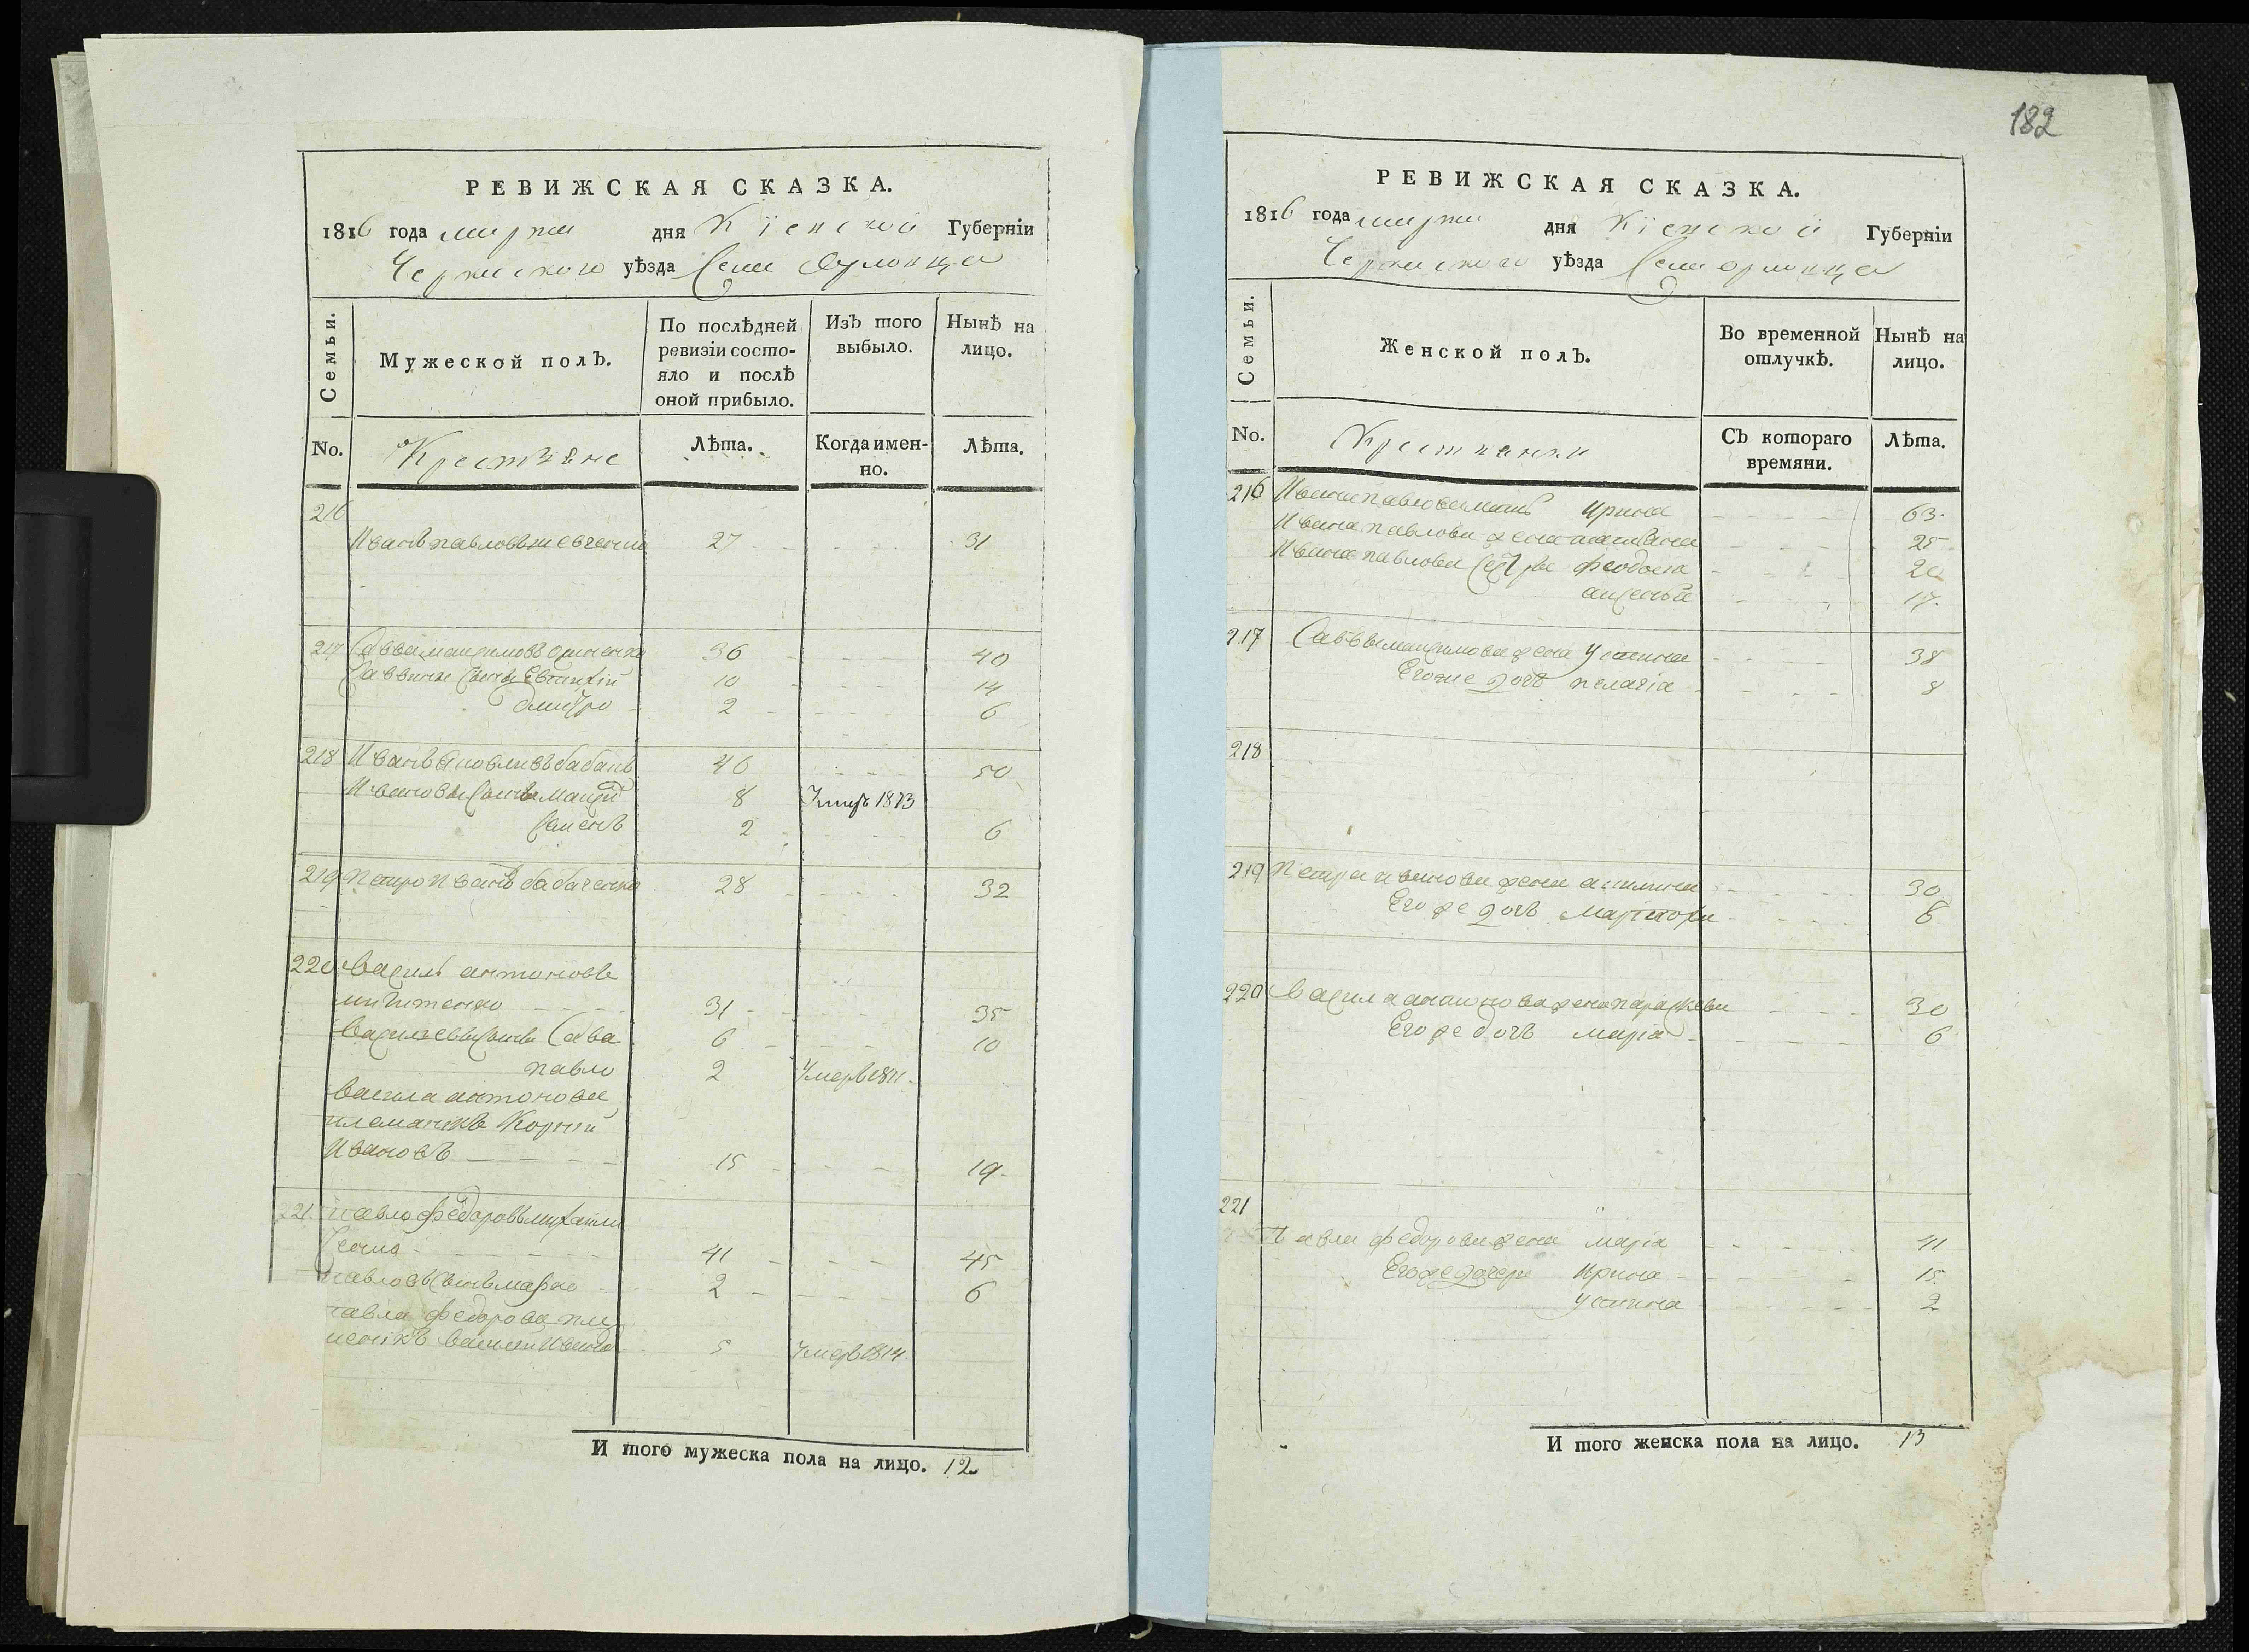 РЕВИЖСКАЯ СКАЗКА.
1816 года марта дня Кіевской Губерніи
Черкаского уѣзда Села Орловца
Семьи.
Мужеской полЪ.
По послѣдней ревизіи состояло и послѣ оной прибыло.
ИзЪ того выбыло.
Нынѣ на лицо.
No.
Крестяне
Лѣта.
Когда именно.
Лѣта.
216
Иванъ павловъ 27 31
217 Савва максимовъ 36 40
Саввины сыны Евтихій 10 14
Дмитро 2 6
218 Иванъ бабакъ 46 50
Ивановы сыны 8 Умеръ 1813
Семенъ 2 6
219 Петро Ивановъ бабаченко 28 32
220 Василь антоновъ
31 35
Василевы сыны Сава 6 10
павло 2 Умеръ 1811
Василя антонова
племаникъ Корній
Ивановъ 15 19
221 павло Федоровъ
41 45
павловъ сынъ 2 6
павла Федорова пле
меникъ Василій Иванов 5 Умеръ 1814
И того мужеска пола на лицо. 12
182
РЕВИЖСКАЯ СКАЗКА.
1816 года марта дня Кіевской Губерніи
Черкаского уѣзда Села орловца
Семьи.
Женской полЪ.
Во временной отлучкѣ.
Нынѣ на лицо.
No.
Крестянки
СЪ котораго времяни.
Лѣта.
216 Ивана павлова мать Ирина 63
Ивана павлова жена 25
Ивана павлова сестры феодосія 20
17
217 Саввы максимова жена Устина 38
Егоже дочь пелагіа 8
218
219 Петра иванова жена акилина 30
Егоже дочь 6
220 Василя антонова жена параскева 30
Егоже дочь маріа 6
221
Павла федорова жена маріа 41
Егоже дочери Ирина 15
Устина 2
И того женска пола на лицо. 13